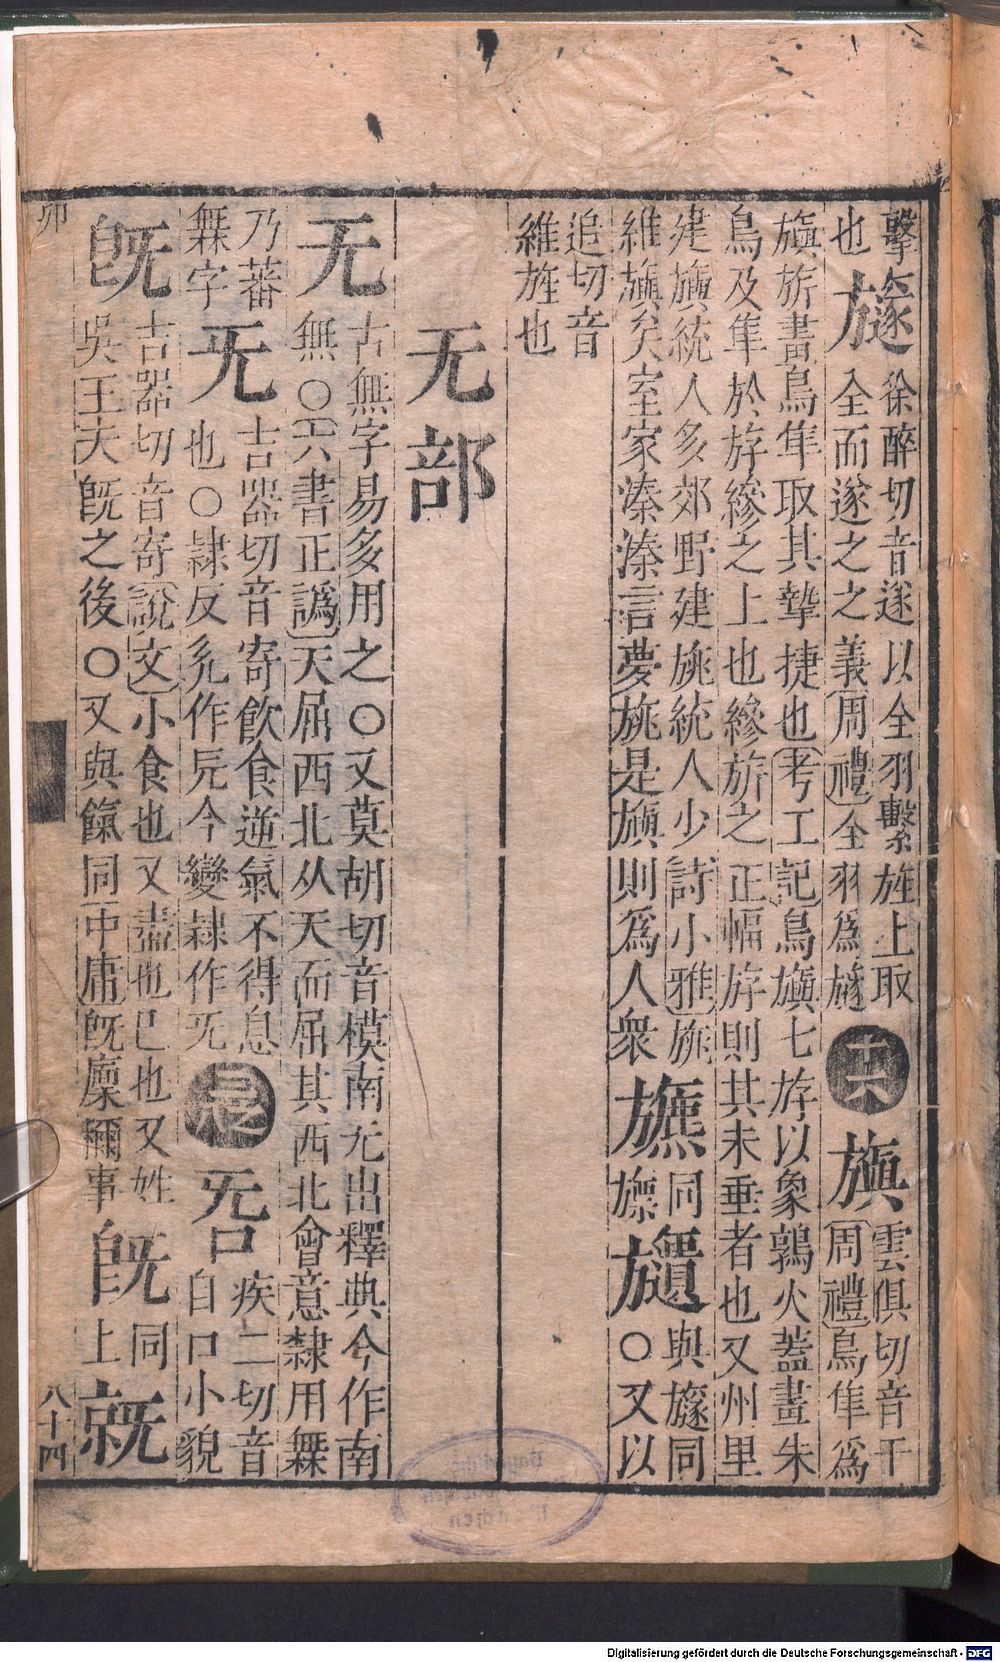 擊
也
旞
徐醉切音遂以全羽繫旌上取
全而遂之之義周禮全羽爲旞
十六
旟
雲俱切音于
周禮鳥隼爲
旟旂畫鳥隼取其摯捷也考工記鳥旟七斿以象鶉火蓋畫朱
鳥及隼於斿縿之上也縿旂之正幅斿則其末垂者也又州里
建旟統人多郊野建旐統人少詩小雅旐
維旟矣室家溱溱言夢旐是旟則爲人衆
同
旝
與旞同
○又以
追切音
維旌也
无部
无
古無字易多用之○又莫胡切音模南无出釋典今作南
無○六書正譌天屈西北从天而屈其西北會意隸用無
乃蕃
無字
旡
吉器切音寄飲食逆氣不得息
也○隷反旡作旡今變隷作旡
四
旤
疾二切音
自口小貌
旣
古器切音寄說文小食也又盡也已也又姓
吳王夫旣之後○又與餼同中庸旣廩爾事
旣
同
上
就
卯
八十四
Digitalisierung gefördert durch die Deutsche Forschungsgemeinschaft - DFG